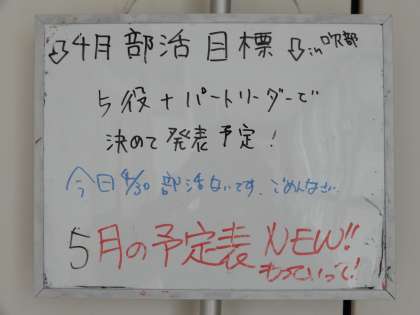 ⇩4月 部活 目標⇩in吹部
5役+パートリーダーで
決めて発表予定!
今日4/30 部活ないです。ごめんなさい…
5月の予定表 NEW!!
もっていって!